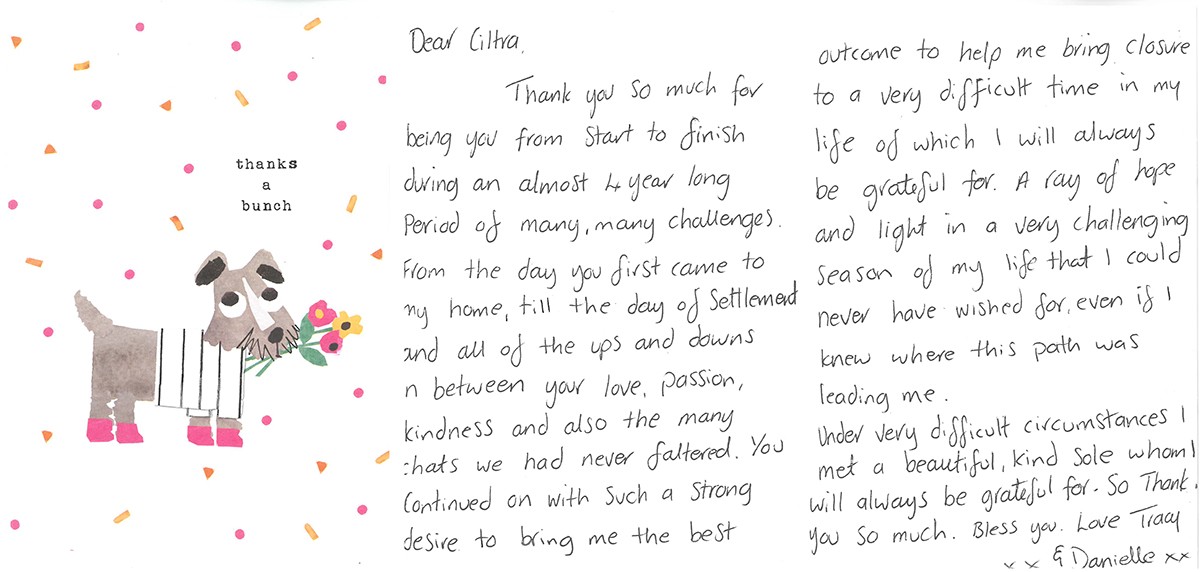 thanks
a
bunch
Dear Ciltra,
Thank you so much for
being you from start to finish
during an almost 4 year long
Period of many, many challenges.
From the day you first came to
my home, till the day of Settlement
and all of the ups and downs
n between your love, passion,
kindness and also the many
chats we had never faltered. You
Continued on with Such a Strong
desire to bring me the best
outcome to help me bring closure
to a very difficult time in my
life of which I will always
be grateful for. A ray of hope
and light in a very challenging
season of my life that I could
never have wished for, even if I
knew where this path was
leading me.
Under very difficult circumstances I
met a beautiful, kind Sole whom I
will always be grateful for. So Thank
you so much. Bless you. Love Tracy
x x & Danielle xx